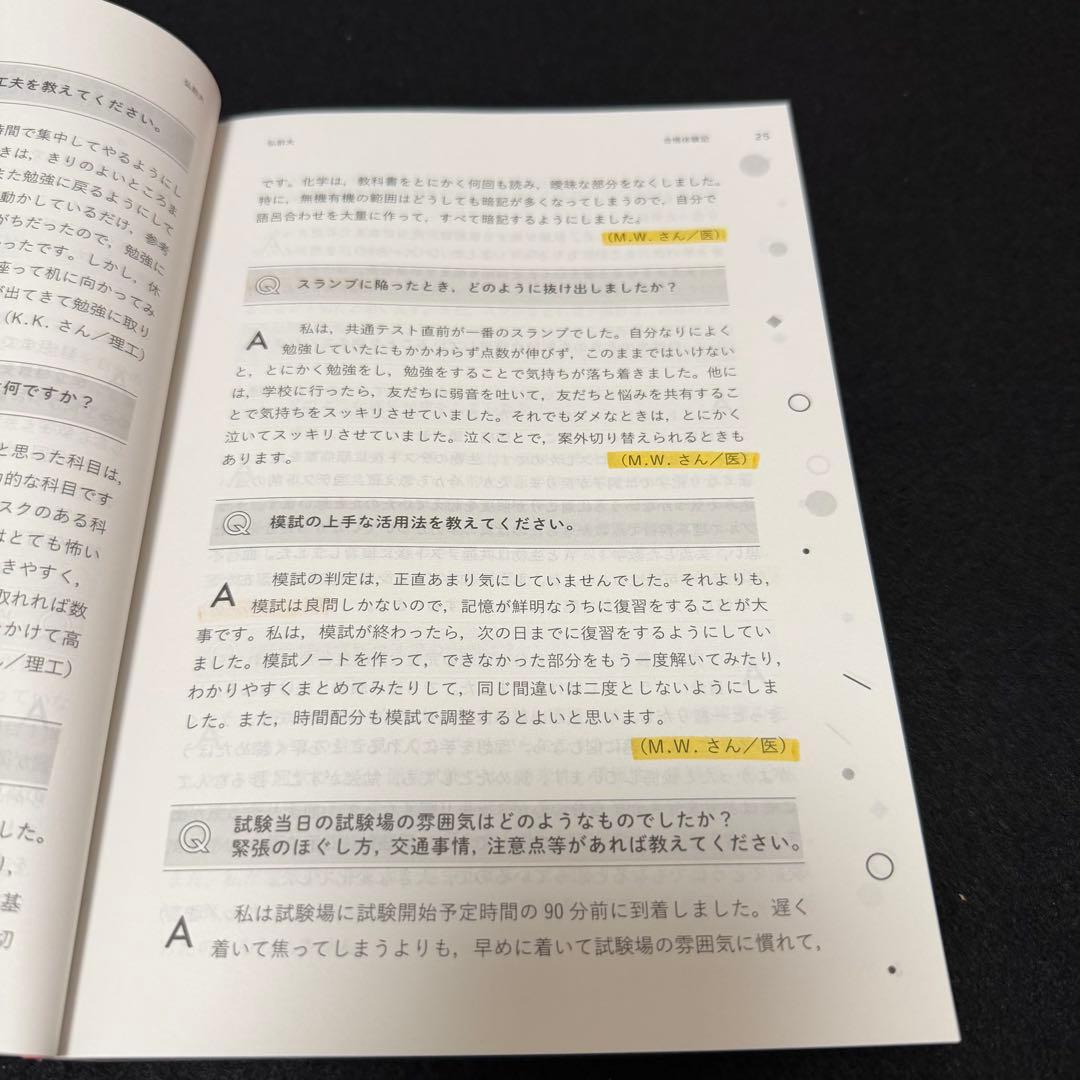 弘前大
工夫を教えてください。
時間で集中してやるようにし
きは，きりのよいところま
また勉強に戻るようにして
動かしているだけ，参考
がちだったので，勉強に
ったです。しかし，休
座って机に向かってみ
が出てきて勉強に取り
（K.K. さん／理工）
何ですか？
と思った科目は，
的な科目です
スクのある科
はとても怖い
きやすく，
取れれば数
かけて高
ん／理工）
した。
り，
基
切
弘前大 合格体験記 25
です。化学は，教科書をとにかく何回も読み，曖昧な部分をなくしました。
特に，無機有機の範囲はどうしても暗記が多くなってしまうので，自分で
語呂合わせを大量に作って，すべて暗記するようにしました。
（M.W. さん／医）
Q スランプに陥ったとき，どのように抜け出しましたか？
A 私は，共通テスト直前が一番のスランプでした。自分なりによく
勉強していたにもかかわらず点数が伸びず，このままではいけない
と，とにかく勉強をし，勉強をすることで気持ちが落ち着きました。他に
は，学校に行ったら，友だちに弱音を吐いて，友だちと悩みを共有するこ
とで気持ちをスッキリさせていました。それでもダメなときは，とにかく
泣いてスッキリさせていました。泣くことで，案外切り替えられるときも
あります。 （M.W. さん／医）
Q 模試の上手な活用法を教えてください。
A 模試の判定は，正直あまり気にしていませんでした。それよりも，
模試は良問しかないので，記憶が鮮明なうちに復習をすることが大
事です。私は，模試が終わったら，次の日までに復習をするようにしてい
ました。模試ノートを作って，できなかった部分をもう一度解いてみたり，
わかりやすくまとめてみたりして，同じ間違いは二度としないようにしま
した。また，時間配分も模試で調整するとよいと思います。
（M.W. さん／医）
Q 試験当日の試験場の雰囲気はどのようなものでしたか？
緊張のほぐし方，交通事情，注意点等があれば教えてください。
A 私は試験場に試験開始予定時間の 90 分前に到着しました。遅く
着いて焦ってしまうよりも，早めに着いて試験場の雰囲気に慣れて，